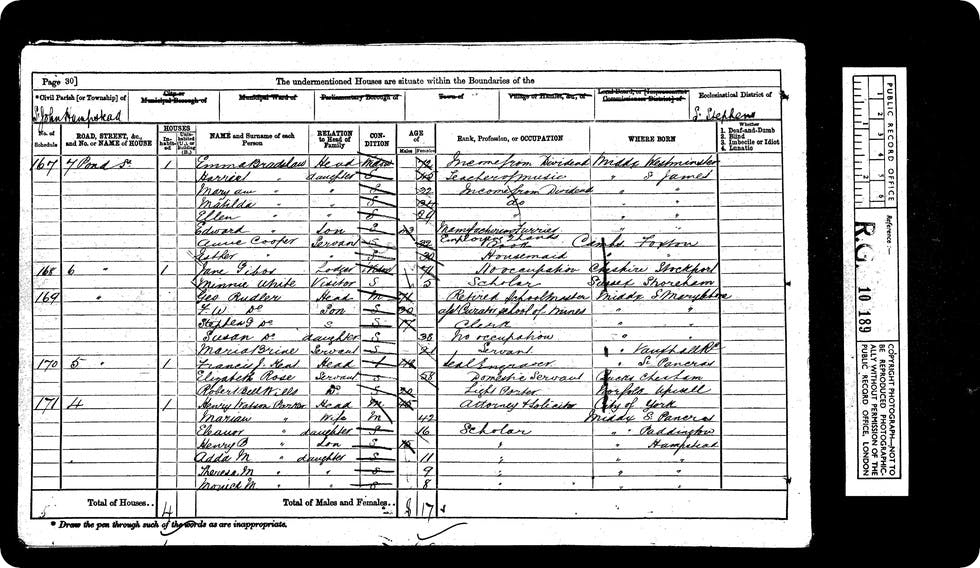 Page 30]
The undermentioned Houses are situate within the Boundaries of the
*Civil Parish [or Township] of
City or Municipal Borough of
Municipal Ward of
Parliamentary Borough of
Town of
Village or Hamlet, &c., of
Local Board, or [Improvement Commissioners District] of
Ecclesiastical District of
St John Hampstead
St Stephens
No. of Schedule
ROAD, STREET, &c., and No. or NAME of HOUSE
HOUSES
In-habit-ed
Unin-habited (U.), or Building (B.)
NAME and Surname of each Person
RELATION to Head of Family
CON-DITION
AGE of
Males
Females
Rank, Profession, or OCCUPATION
WHERE BORN
Whether
1. Deaf-and-Dumb
2. Blind
3. Imbecile or Idiot
4. Lunatic
167 7 Pond St 1 Emma Bradshaw Head Widow 72 Income from Dividend Middx Westminster
Harriet " daughter S Teacher of music " St James
Mary an " " S 32 Income from Dividend " "
Matilda " " S do " "
Ellen " " S 29 " " "
Edward " Son S Manufacturing Furrier " "
Employing 2 hands
Annie Cooper Servant S Cook Cambs. Foxton
Esther " " S Housemaid "
168 6 " 1 Jane Lodger Widow 71 No occupation Cheshire Stockport
Minnie White Visitor S 5 Scholar Sussex Shoreham
169 " Geo Rudler Head M 71 Retired School Master Middx St Marylebone
F. W Do Son S 30 Curator School of Mines " "
Stephen G Do S S 17 Clerk " "
Susan Do daughter S 38 No occupation " "
Maria Brine Servant S 21 Servant " Vauxhall Rd
170 5 " 1 Francis J. Head Seal Engraver " St Pancras
Elizabeth Rose Servant S 58 Domestic Servant Bucks Chesham
Robert Bell Wells Do S 20 Light Porter Norfolk Upwell
171 4 " 1 Henry Watson Parker Head M 45 Attorney & Solicitor City of York
Marian " Wife M 42 Middx St Pancras
Eleanor " daughter S 16 Scholar " Paddington
Henry B " Son S " " Hampstead
Adda M " daughter S 11 " " "
Theresa M " " S 9 " " "
Monica M. " " S 8 " " "
Total of Houses..
4
Total of Males and Females..
8 17
* Draw the pen through such of the words as are inappropriate.
PUBLIC RECORD OFFICE
1 2 3 4 5 6
1 2
Reference :-
R.G. 10 189
COPYRIGHT PHOTOGRAPH—NOT TO BE REPRODUCED PHOTOGRAPHIC-ALLY WITHOUT PERMISSION OF THE PUBLIC RECORD OFFICE, LONDON